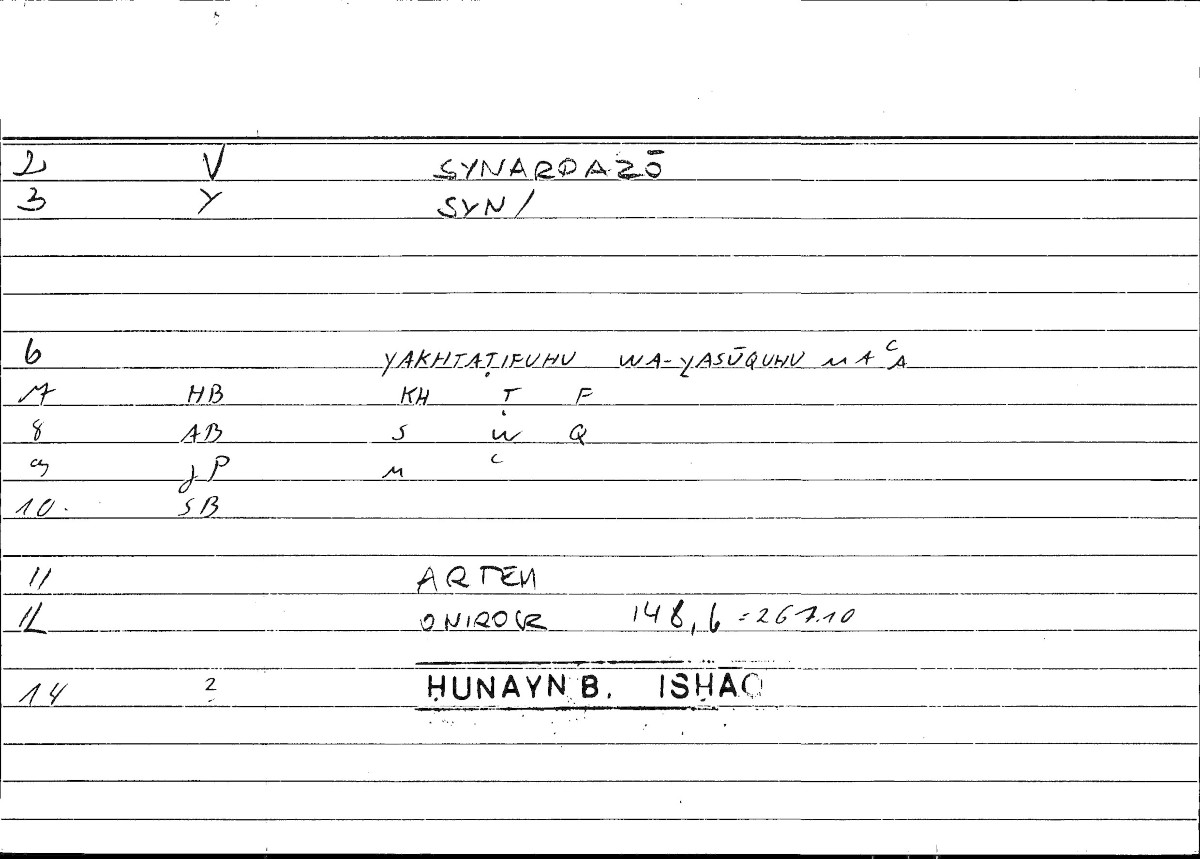 2 V SYNARPAZŌ
3 Y SYN/
6 YAKHTAṬIFUHU WA-YASŪQUHU MAʿA
7 HB KH Ṭ F
8 AB S W Q
9 JP M ʿ
10. SB
11 ARTEM
12 ONIROCR 148,6 = 267.10
14 2 ḤUNAYN B. ISḤAQ